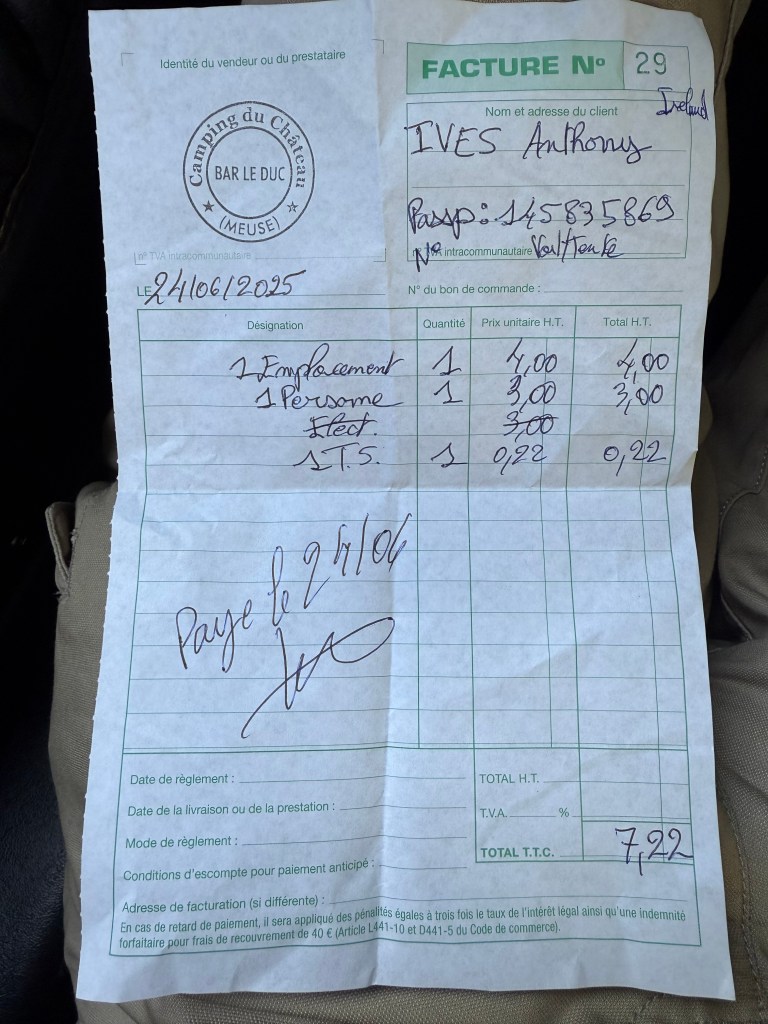 Identité du vendeur ou du prestataire
FACTURE N° 29
Camping du Château
BAR LE DUC
(MEUSE)
Nom et adresse du client
Ireland
IVES Anthony
Passp: 145835869
N°
n° TVA intracommunautaire
TVA intracommunautaire
LE 24/06/2025
N° du bon de commande :
Désignation Quantité Prix unitaire H.T. Total H.T.
1 Emplacement 1 4,00 4,00
1 Personne 1 3,00 3,00
Elect. 3,00
1 T.S. 1 0,22 0,22
Paye le 24/06
Date de règlement :
Date de la livraison ou de la prestation :
Mode de règlement :
Conditions d'escompte pour paiement anticipé :
Adresse de facturation (si différente) :
TOTAL H.T.
T.V.A. %
TOTAL T.T.C. 7,22
En cas de retard de paiement, il sera appliqué des pénalités égales à trois fois le taux de l'intérêt légal ainsi qu'une indemnité
forfaitaire pour frais de recouvrement de 40 € (Article L441-10 et D441-5 du Code de commerce).